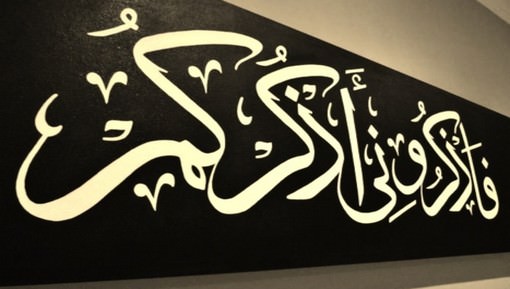 فاذكروني أذكركم